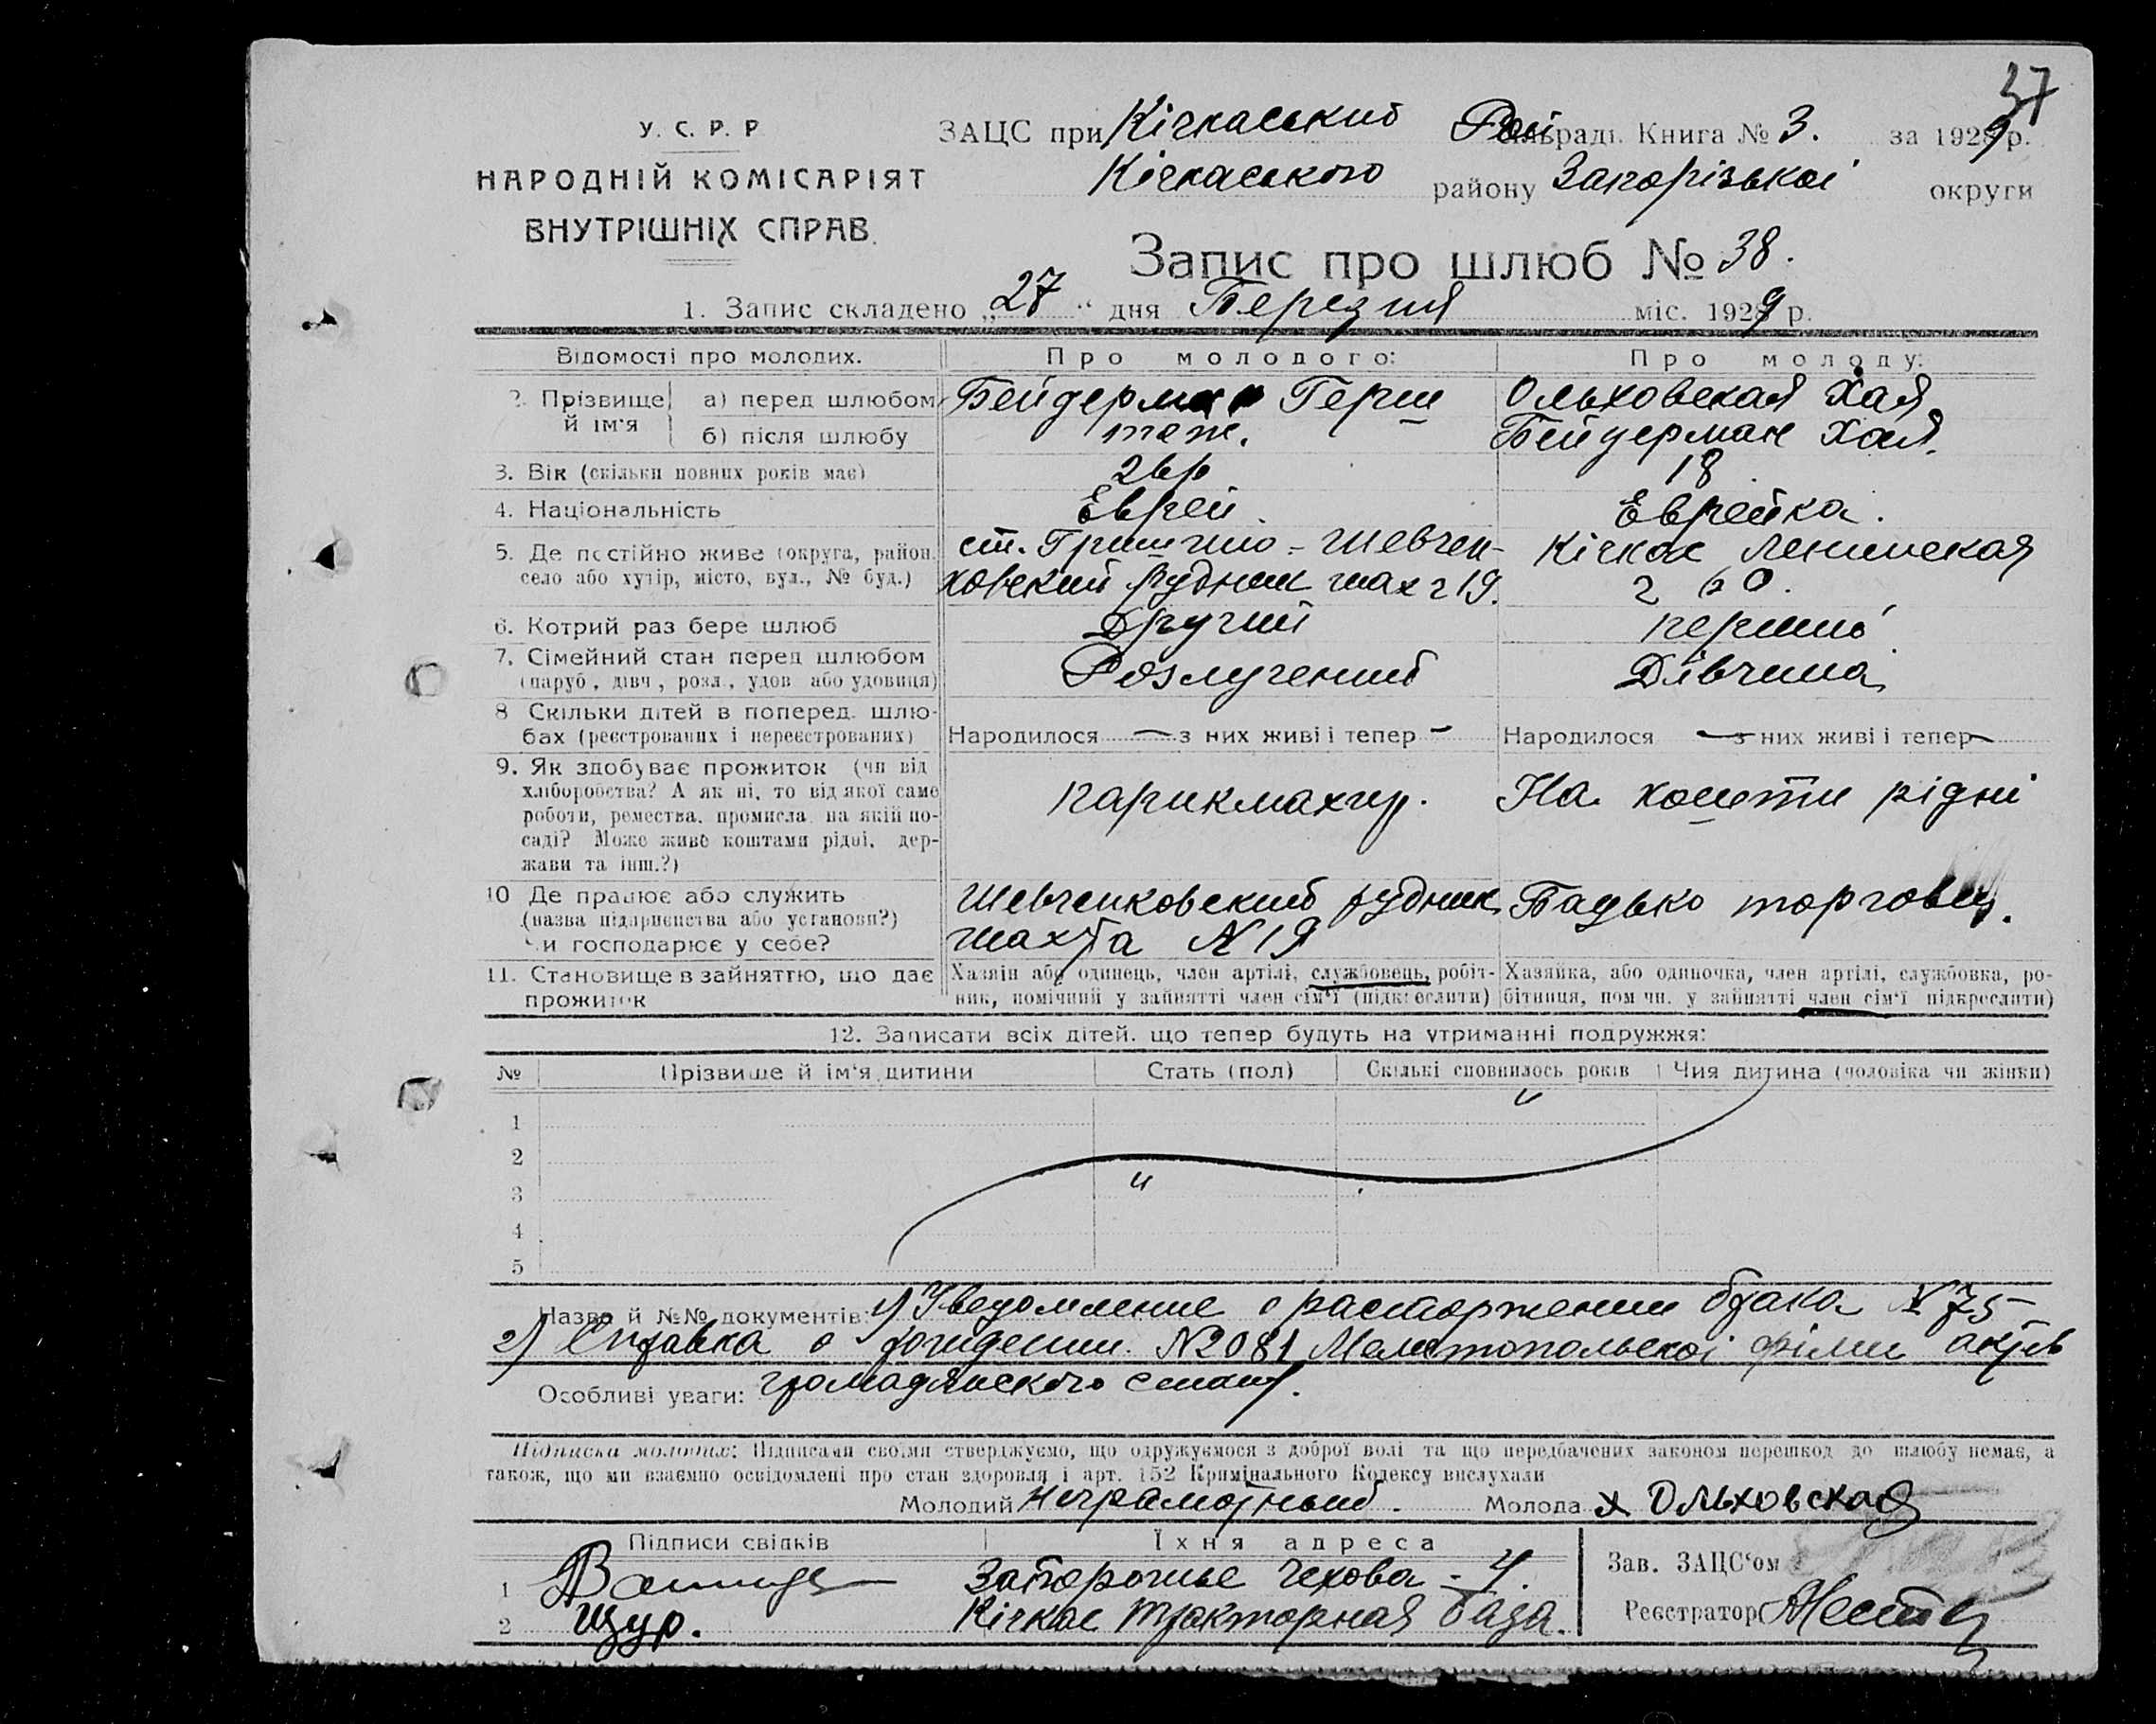 37
У. С. Р. Р.
НАРОДНІЙ КОМІСАРІЯТ
ВНУТРІШНІХ СПРАВ.
ЗАЦС при Кічкаський Рай сільраді. Книга № 3. за 1929 р.
Кічкаського району Запорізької округи
Запис про шлюб № 38.
1. Запис складено „27“ дня Березня міс. 1929 р.
Відомості про молодих. Про молодого: Про молоду:
2. Прізвище й ім'я а) перед шлюбом Бейдерман Герш Ольховская Хая
б) після шлюбу теж. Бейдерман Хая.
3. Вік (скільки повних років має) 26 р 18
4. Національність Еврей Еврейка.
5. Де постійно живе (округа, район, ст. Гришино - Шевчен- Кічкас Ленинская
село або хутір, місто, вул., № буд.) ковский рудник шах 19.
6. Котрий раз бере шлюб Другий перший
7. Сімейний стан перед шлюбом Розлучений Дівчина
(паруб., дівч., розл., удов. або удовиця)
8 Скільки дітей в поперед. шлю-
бах (реєстрованих і нереєстрованих) Народилося — з них живі і тепер — Народилося — з них живі і тепер —
9. Як здобуває прожиток (чи від
хліборобства? А як ні, то від якої саме парикмахер. На кошти рідні
роботи, ремества, промисла, на якій по-
саді? Може живе коштами рідні, дер-
жави та інш.?)
10 Де працює або служить Шевченковский рудник Батько торговец.
(назва підприємства або установи?)
чи господарює у себе? шахта N 19
11. Становище в зайняттю, що дає Хазяін або одинець, член артілі, службовець, робіт- Хазяйка, або одиночка, член артілі, службовка, ро-
прожиток ник, помічний у зайнятті член сім'ї (підкреслити) бітниця, пом чн. у зайнятті член сім'ї підкреслити)
12. Записати всіх дітей, що тепер будуть на утриманні подружжя:
№ Прізвище й ім'я дитини Стать (пол) Скількі сповнилось років Чия дитина (чоловіка чи жінки)
1
2
3
4
5
Назва й №№ документів: 1) Уведомление о расторжении брака N 75
2) Справка о рождении N 2081 Мелитопольскої філии актів
Особливі уваги: громадянского стану.
Підписка молодих: Підписами своїми стверджуємо, що одружуємося з доброї волі та що передбачених законом перешкод до шлюбу немає, а
також, що ми взаємно освідомлені про стан здоровля і арт. 152 Кримінального Кодексу вислухали
Молодий Неграмотный. Молода х Ольховская
Підписи свідків Їхня адреса
1 Запорожье Чехова - 4. Зав. ЗАЦС'ом
2 Щур. Кічкас Тракторная база. Реєстратор